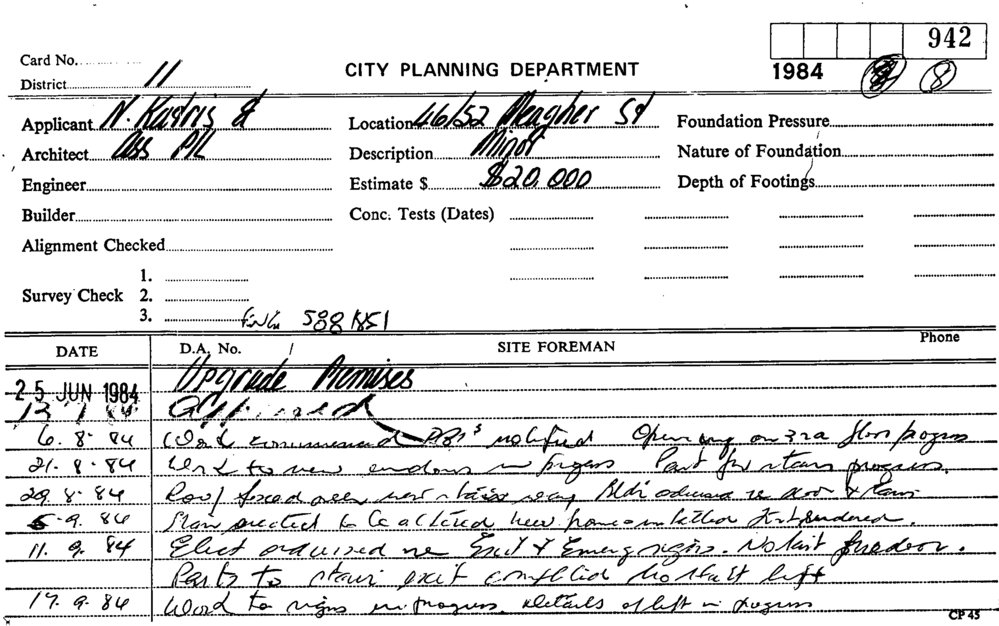 942
Card No.
1984 8 8
District 11
CITY PLANNING DEPARTMENT
Applicant N. Kadris & Location 46/52 Meagher St Foundation Pressure
Architect Ass P/L Description Minor Nature of Foundation
Engineer Estimate $ $20,000 Depth of Footings
Builder Conc. Tests (Dates)
Alignment Checked
1.
Survey Check 2.
3.
588 1851
DATE D.A. No. SITE FOREMAN Phone
25 JUN 1984 Upgrade Premises
Approved
6. 8. 84 Work commenced notified Opening on 3rd floor progress
21. 8. 84 Work to new in progress Part for stairs progress.
29. 8. 84 Roof new stair way Bldr advised re door & stair
5. 9. 84 Stair erected to be altered new frame installed
11. 9. 84 Elect advised re Exit & Emerg signs. No fire door.
Parts to stair exit completed No lift
17. 9. 84 Work to signs in progress. Details of lift in progress
CP 45